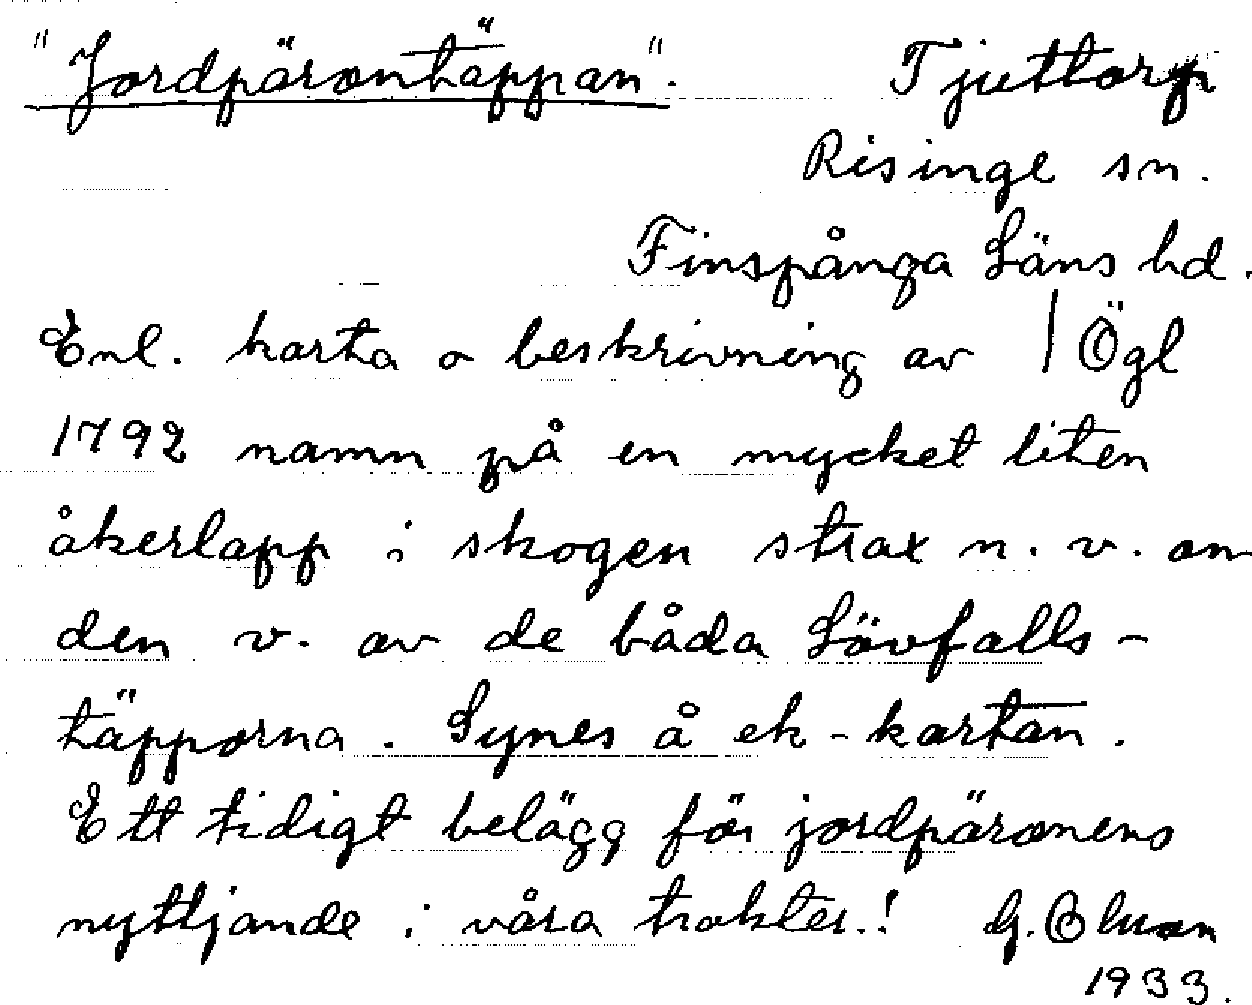 "Jordpärontäppan". Tjuttorp
Risinge sn.
Finspånga Läns hd.
Enl. karta o beskrivning av | Ögl
1792 namn på en mycket liten
åkerlapp i skogen strax n. v. om
den v. av de båda Lövfalls-
täpporna. Synes å ek-kartan.
Ett tidigt belägg för jordpäronens
nyttjande i våra trakter.! G.
1933.